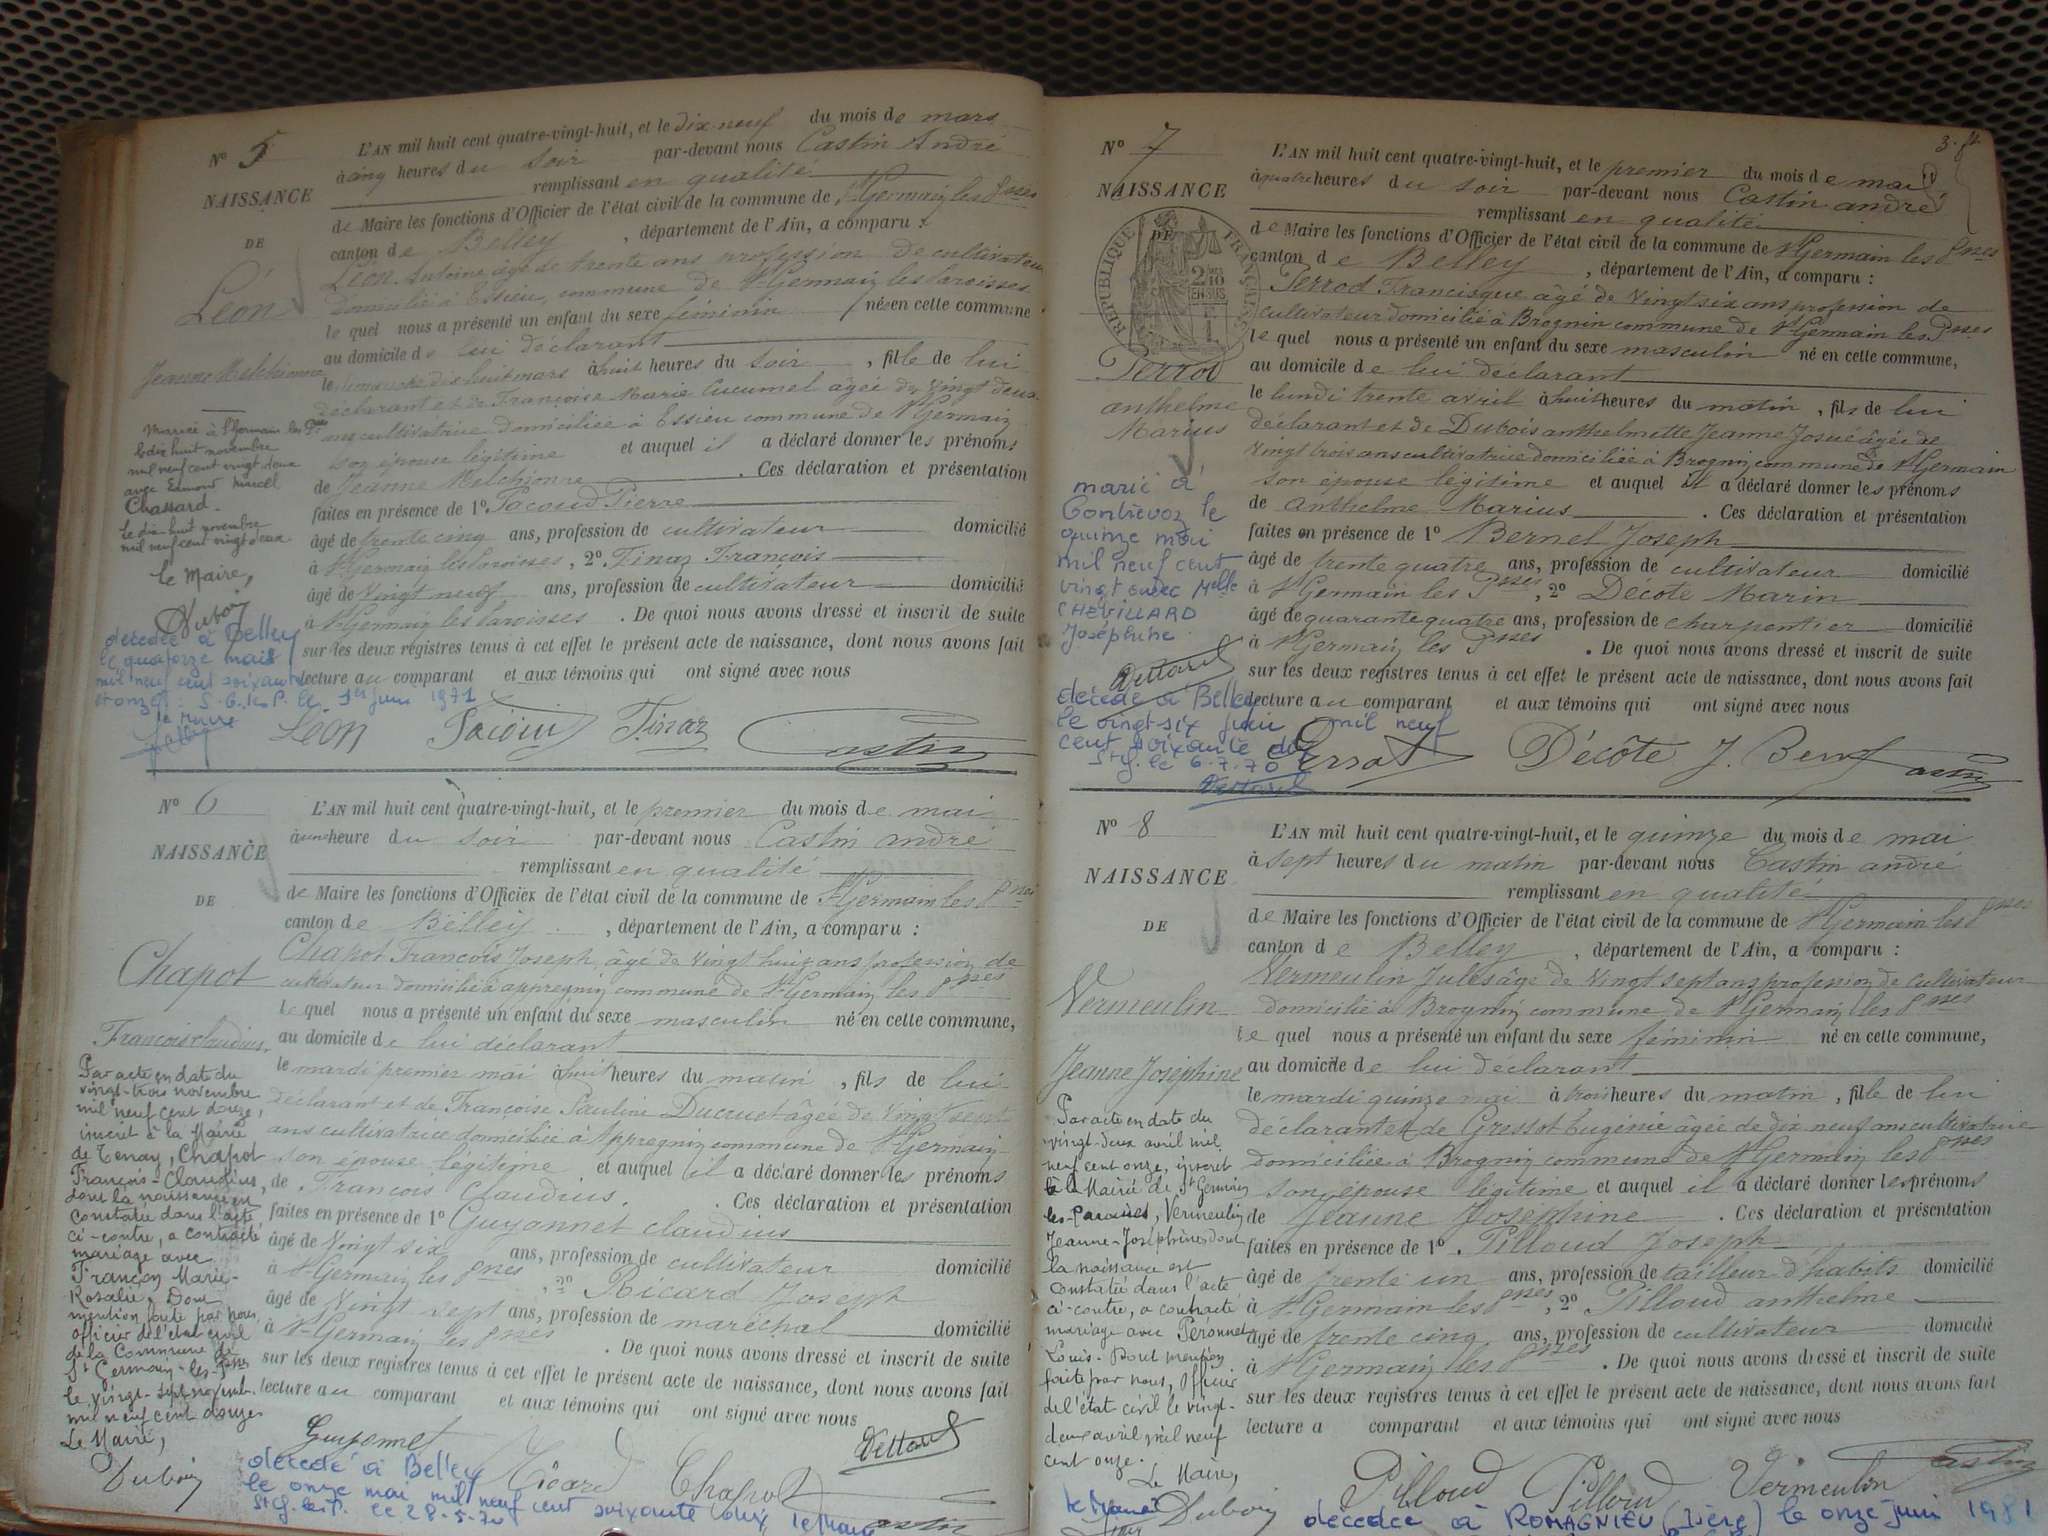 N° 5
NAISSANCE
DE
Léon
Jeanne Melchionne
L'AN mil huit cent quatre-vingt-huit, et le dix neuf du mois de mars
à cinq heures du soir par-devant nous Castin André
remplissant en qualité
de Maire les fonctions d'Officier de l'état civil de la commune de St Germain les Pses
canton de Belley, département de l'Ain, a comparu :
Léon Antoine âgé de trente ans profession de cultivateur
domicilié à Essieu, commune de St Germain les Paroisses
le quel nous a présenté un enfant du sexe féminin née en cette commune
au domicile de lui déclarant
le dimanche dix huit mars à huit heures du soir, fille de lui
déclarant et de Françoise Marie Cucumel âgée de vingt deux
ans cultivatrice domiciliée à Essieu commune de St Germain
son épouse légitime et auquel il a déclaré donner les prénoms
de Jeanne Melchionne. Ces déclaration et présentation
faites en présence de 1° Tacoud Pierre
âgé de trente cinq ans, profession de cultivateur domicilié
à St Germain les Paroisses, 2° Tinaz François
âgé de vingt neuf ans, profession de cultivateur domicilié
à St Germain les Paroisses. De quoi nous avons dressé et inscrit de suite
sur les deux registres tenus à cet effet le présent acte de naissance, dont nous avons fait
lecture au comparant et aux témoins qui ont signé avec nous
Léon Tacoud Tinaz Castin
Mariée à St Germain les Pses
le dix huit novembre
mil neuf cent vingt deux
avec Edmond Marcel
Chassard.
Le dix huit novembre
mil neuf cent vingt deux.
Le Maire,
Dubois
décédée à Belley
le quatorze mai
mil neuf cent soixante
et onze. S.G.les.P. le 1er juin 1971
le maire
N° 6
NAISSANCE
DE
Chapot
François Claudius,
L'AN mil huit cent quatre-vingt-huit, et le premier du mois de mai
à une heure du soir par-devant nous Castin andré
remplissant en qualité
de Maire les fonctions d'Officier de l'état civil de la commune de St Germain les Pses
canton de Belley, département de l'Ain, a comparu :
Chapot François Joseph, âgé de vingt huit ans profession de
cultivateur domicilié à appregnin commune de St Germain les Pses
le quel nous a présenté un enfant du sexe masculin né en cette commune,
au domicile de lui déclarant
le mardi premier mai à huit heures du matin, fils de lui
déclarant et de Françoise Pauline Ducruet âgée de vingt sept
ans cultivatrice domiciliée à Appregnin commune de St Germain
son épouse légitime et auquel il a déclaré donner les prénoms
de François Claudius. Ces déclaration et présentation
faites en présence de 1° Guyonnet claudius
âgé de vingt six ans, profession de cultivateur domicilié
à St Germain les Pses, 2° Ricard Joseph
âgé de vingt sept ans, profession de maréchal domicilié
à St Germain les Pses. De quoi nous avons dressé et inscrit de suite
sur les deux registres tenus à cet effet le présent acte de naissance, dont nous avons fait
lecture au comparant et aux témoins qui ont signé avec nous
Guyonnet Ricard Chapot Castin
Par acte en date du
vingt-trois novembre
mil neuf cent douze,
inscrit à la Mairie
de Tenay, Chapot
François-Claudius,
dont la naissance en
constatée dans l'acte
ci-contre, a contracté
mariage avec
Françon Marie-
Rosalie. Dont
mention faite par nous,
officier de l'état civil
de la Commune de
St Germain-les-Pses
le vingt-sept novemb.
mil neuf cent douze
Le Maire,
Dubois
décédé à Belley
le onze mai mil neuf cent soixante dix, le Maire
St G. les P. le 28.5.70
N° 7
3.
NAISSANCE
DE
RÉPUBLIQUE FRANÇAISE
Perrod
anthelme
Marius
L'AN mil huit cent quatre-vingt-huit, et le premier du mois de mai
à quatre heures du soir par-devant nous Castin andré
remplissant en qualité
de Maire les fonctions d'Officier de l'état civil de la commune de St Germain les Pses
canton de Belley, département de l'Ain, a comparu :
Perrod Francisque âgé de vingt six ans profession de
cultivateur domicilié à Brognin commune de St Germain les Pses
le quel nous a présenté un enfant du sexe masculin né en cette commune,
au domicile de lui déclarant
le lundi trente avril à huit heures du matin, fils de lui
déclarant et de Dubois anthelmette Jeanne Josué âgée de
vingt trois ans cultivatrice domiciliée à Brognin commune de St Germain
son épouse légitime et auquel il a déclaré donner les prénoms
de anthelme Marius. Ces déclaration et présentation
faites en présence de 1° Bernet Joseph
âgé de trente quatre ans, profession de cultivateur domicilié
à St Germain les Pses, 2° Décote Marin
âgé de quarante quatre ans, profession de charpentier domicilié
à St Germain les Pses. De quoi nous avons dressé et inscrit de suite
sur les deux registres tenus à cet effet le présent acte de naissance, dont nous avons fait
lecture au comparant et aux témoins qui ont signé avec nous
Perrod Décôte J. Bernet Castin
marié à
Contrevoz le
quinze mai
mil neuf cent
vingt avec Melle
CHEVILLARD
Joséphine.
décédé à Belley
le vingt-six juin mil neuf
cent soixante dix
St G. le 6.7.70
N° 8
NAISSANCE
DE
Vermeulin
Jeanne Joséphine
L'AN mil huit cent quatre-vingt-huit, et le quinze du mois de mai
à sept heures du matin par-devant nous Castin andré
remplissant en qualité
de Maire les fonctions d'Officier de l'état civil de la commune de St Germain les Pses
canton de Belley, département de l'Ain, a comparu :
Vermeulin Jules âgé de vingt sept ans profession de cultivateur
domicilié à Brognin commune de St Germain les Pses
le quel nous a présenté un enfant du sexe féminin né en cette commune,
au domicile de lui déclarant
le mardi quinze mai à trois heures du matin, fille de lui
déclarant et de Gressot Eugénie âgée de dix neuf ans cultivatrice
domiciliée à Brognin commune de St Germain les Pses
son épouse légitime et auquel il a déclaré donner les prénoms
de Jeanne Joséphine. Ces déclaration et présentation
faites en présence de 1° Pilloud Joseph
âgé de trente un ans, profession de tailleur d'habits domicilié
à St Germain les Pses, 2° Pilloud anthelme
âgé de trente cinq ans, profession de cultivateur domicilié
à St Germain les Pses. De quoi nous avons dressé et inscrit de suite
sur les deux registres tenus à cet effet le présent acte de naissance, dont nous avons fait
lecture a comparant et aux témoins qui ont signé avec nous
Pilloud Pilloud Vermeulin Castin
Par acte en date du
vingt-deux avril mil
neuf cent onze, inscrit
à la Mairie de St Germain
les-Paroisses, Vermeulin
Jeanne-Joséphine dont
la naissance est
constatée dans l'acte
ci-contre, a contracté
mariage avec Péronnet
Louis. Dont mention
faite par nous, officier
de l'état civil le vingt-
deux avril mil neuf
cent onze.
Le Maire,
Dubois
décédée à ROMAGNIEU (Isère) le onze juin 1981